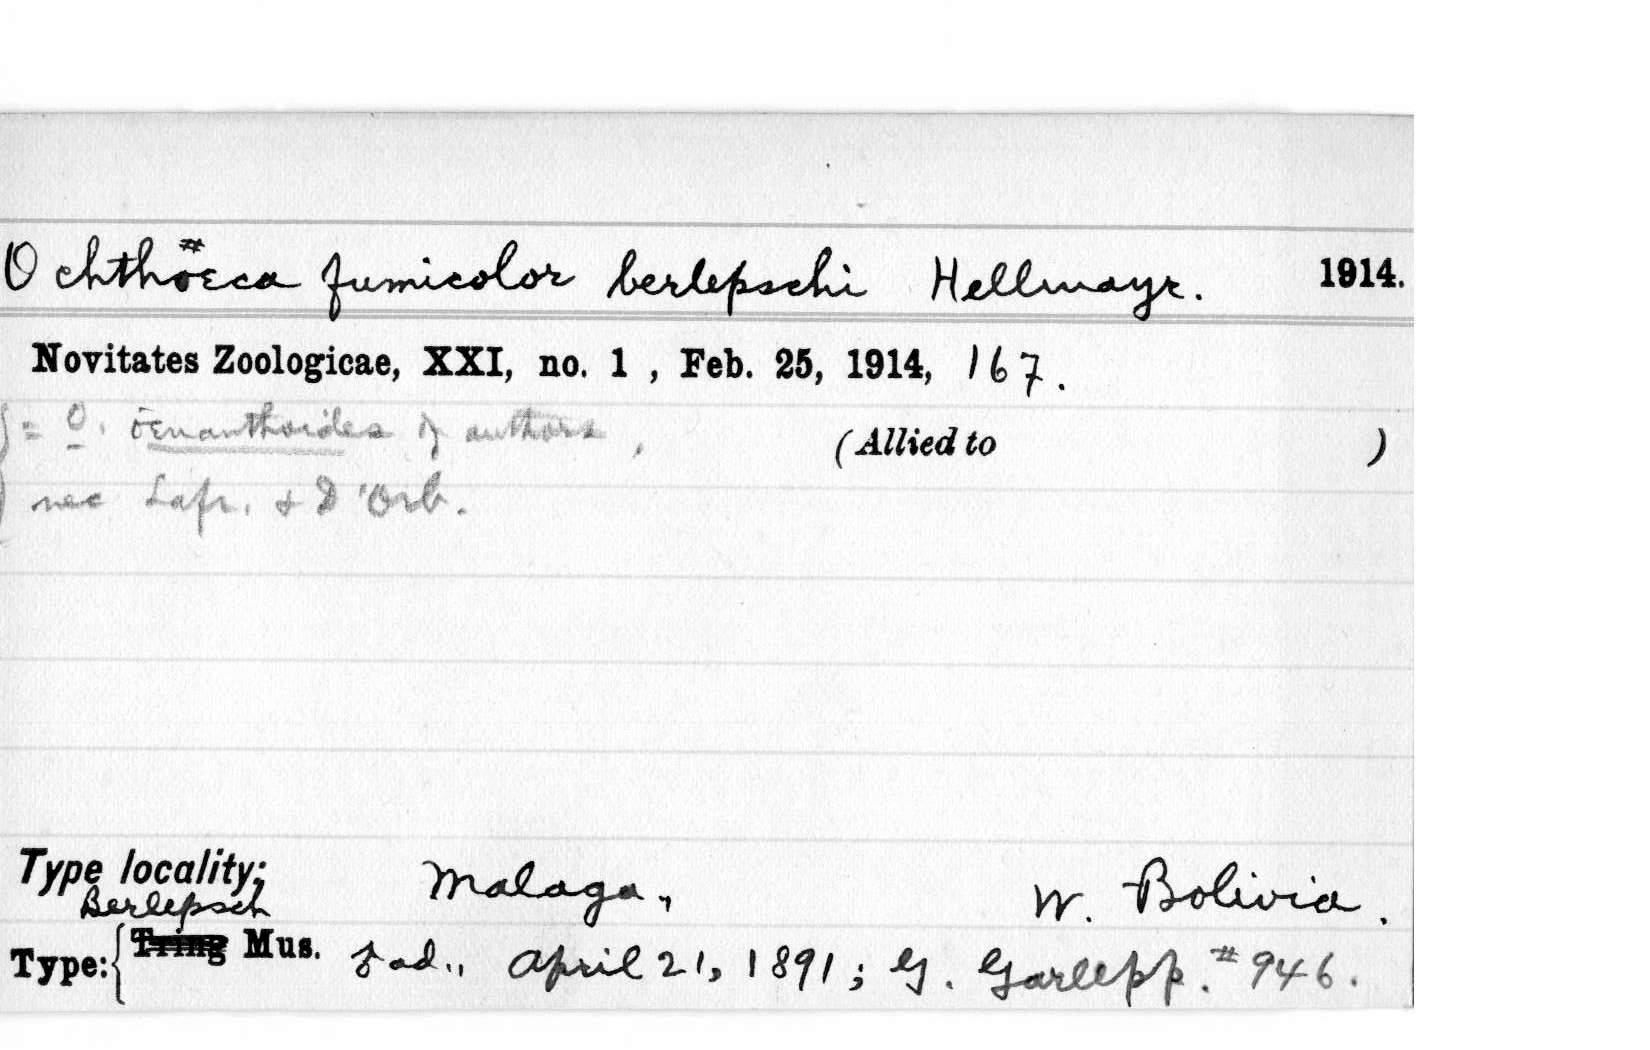 Ochthöeca fumicolor berlepschi Hellmayr. 1914.
Novitates Zoologicae, XXI, no. 1, Feb. 25, 1914, 167.
= O. öenanthoides of authors, (Allied to )
nec Lafr. & D'Orb.
Type locality; Malaga, W. Bolivia.
Berlepsch
Type: Tring Mus. ad., April 21, 1891; G. Garlepp. #946.